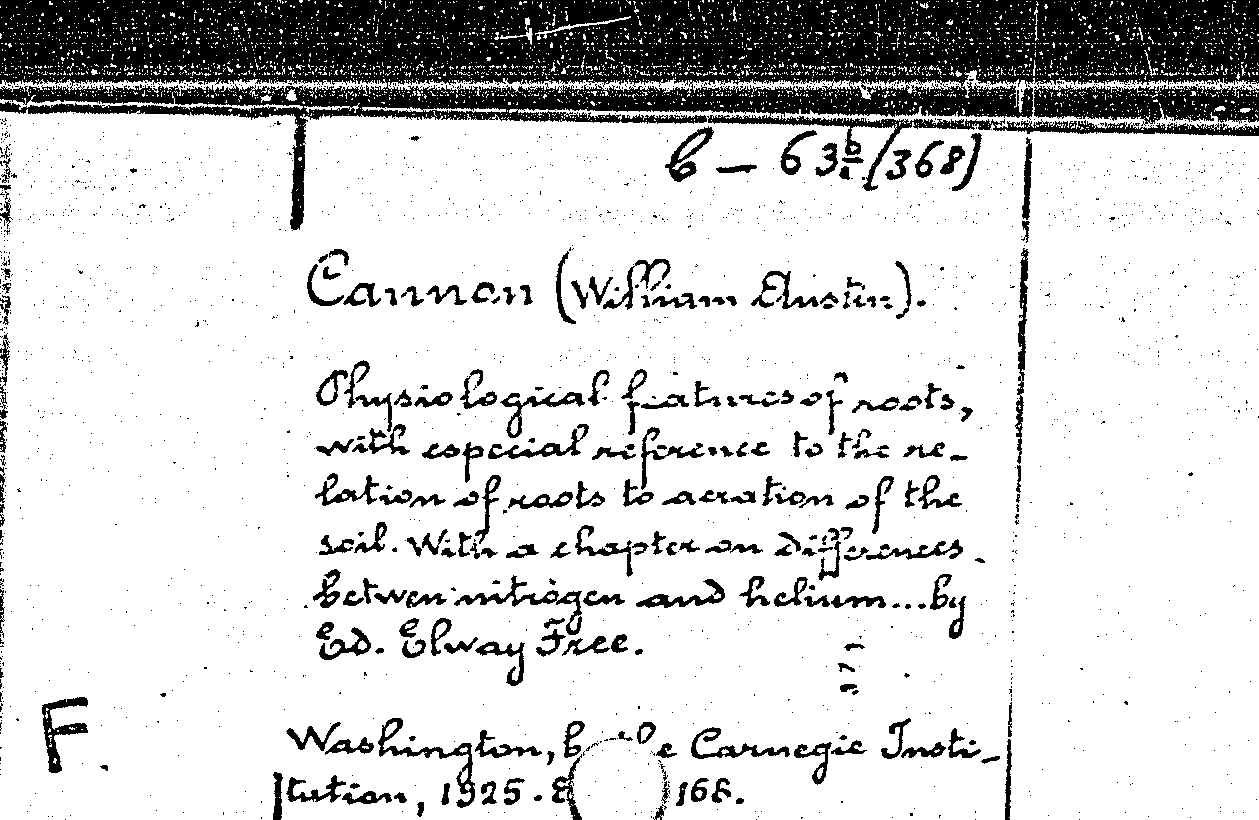 b - 63 b/a (368)
Cannon (William Austin).
Physiological features of roots,
with especial reference to the re-
lation of roots to aeration of the
soil. With a chapter on differences
betwen nitrogen and helium...by
Ed. Elway Free.
F.
Washington, Carnegie Insti-
tution, 1925. 168.